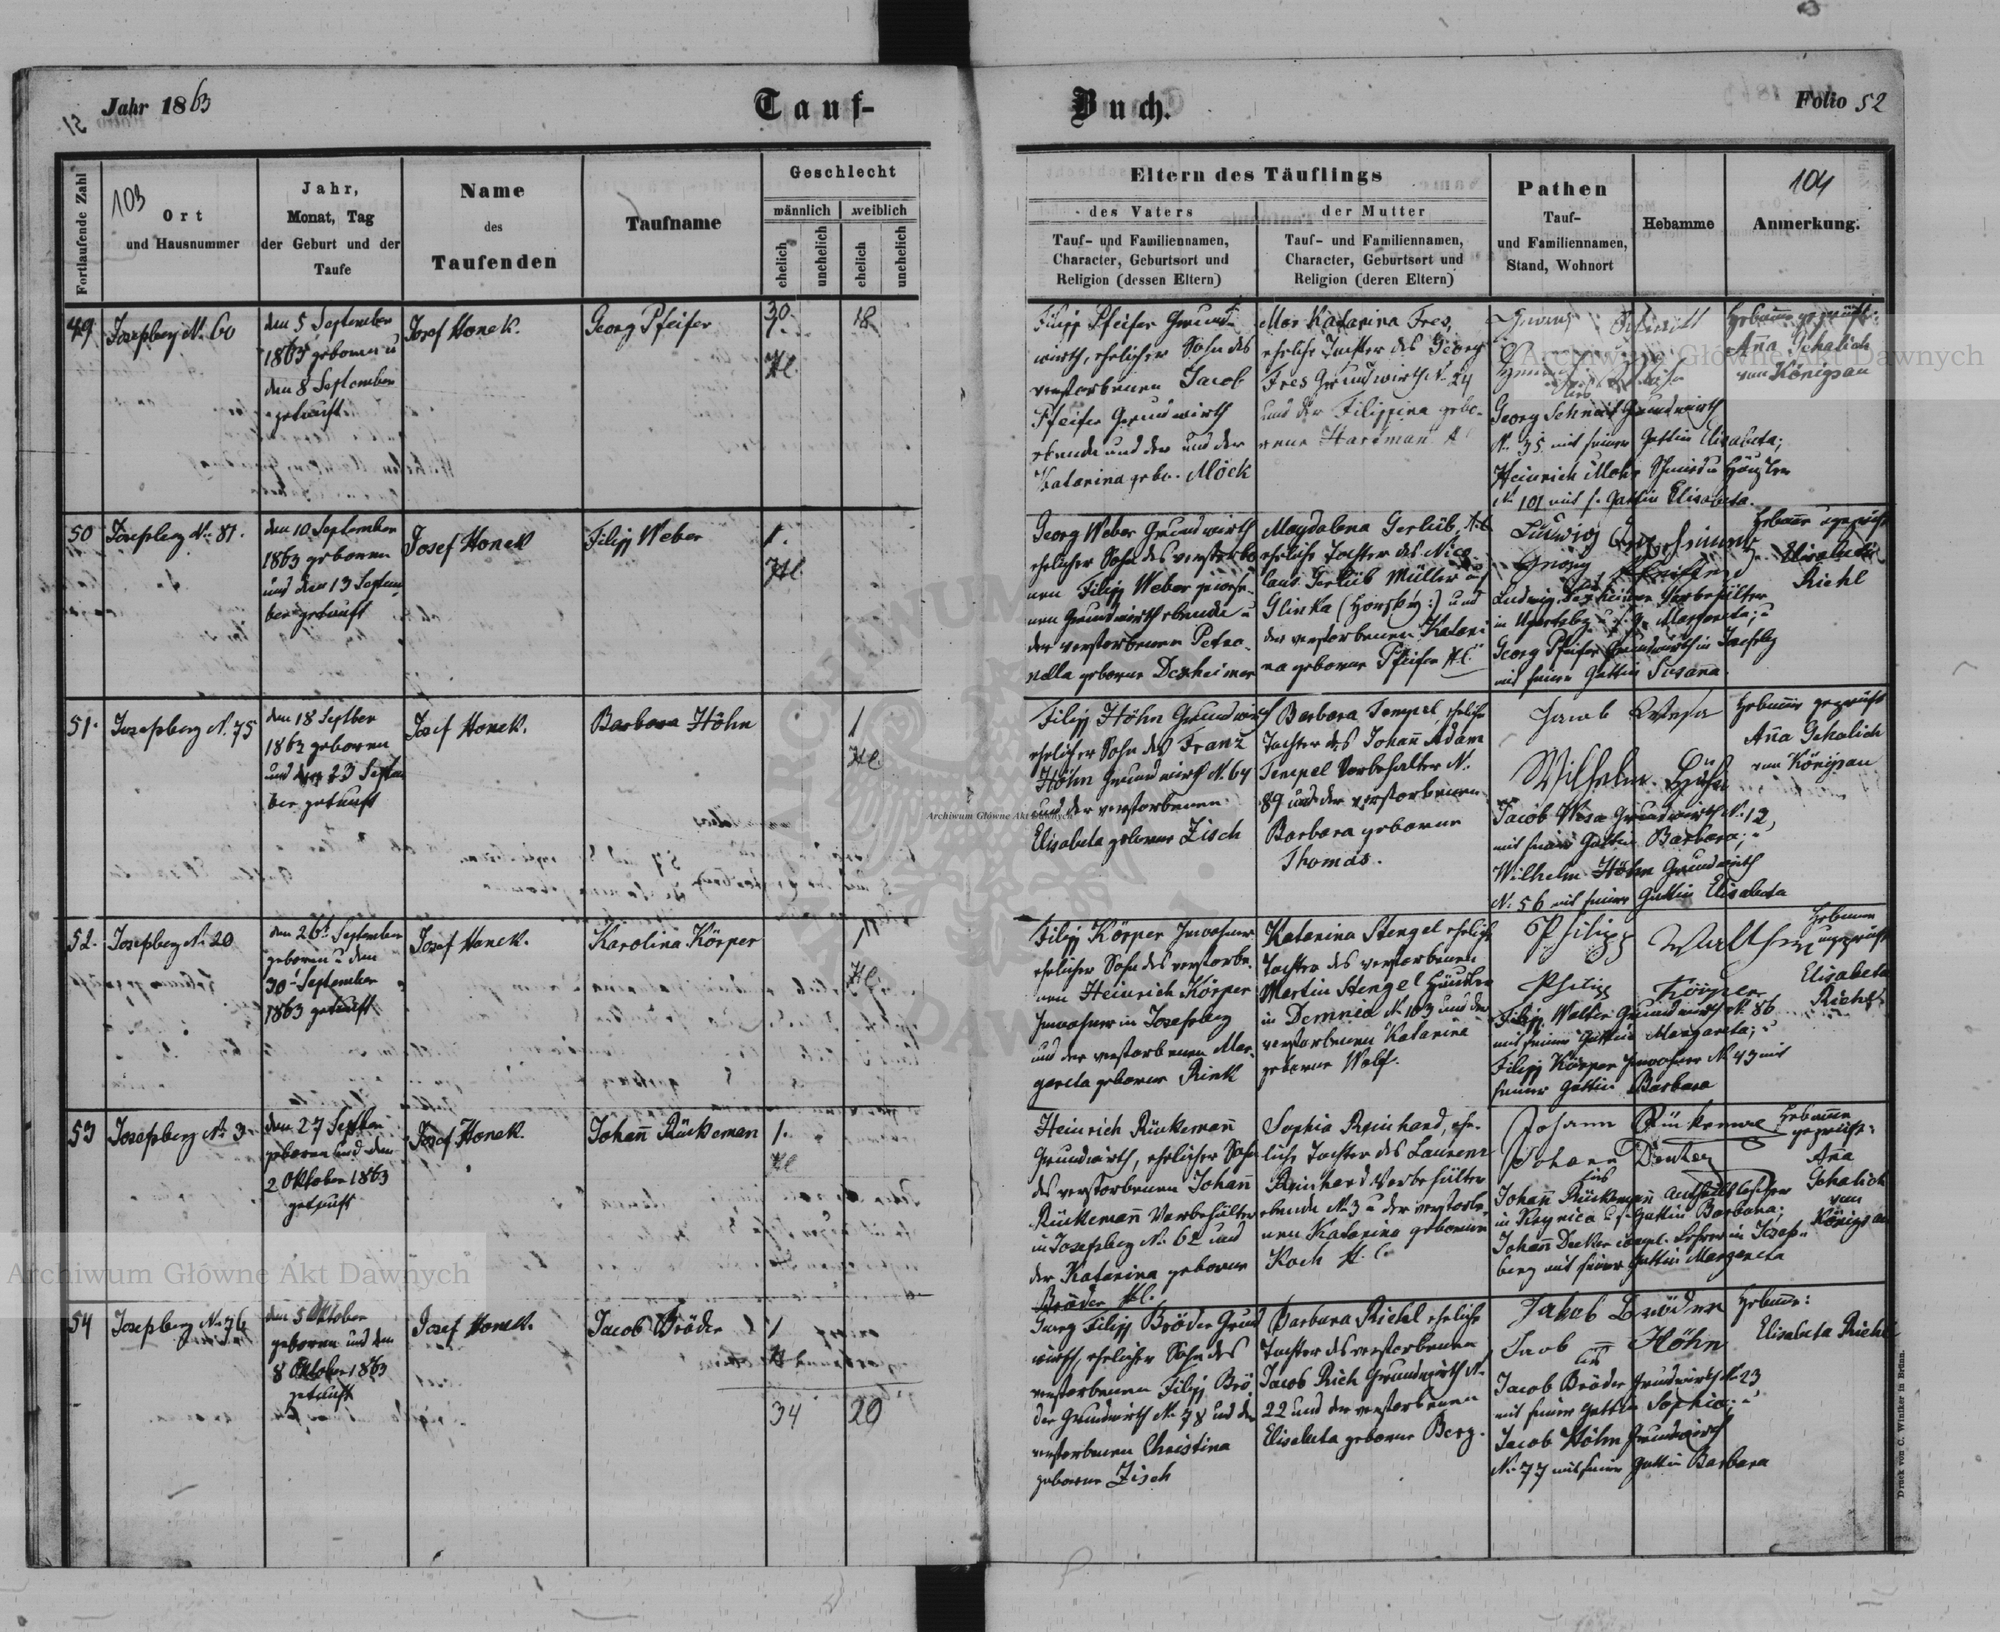 Jahr 1863
Tauf-
Buch.
Folio 52
51
103
104
Fortlaufende Zahl
Ort
und Hausnummer
Jahr,
Monat, Tag
der Geburt und der
Taufe
Name
des
Taufenden
Taufname
Geschlecht
männlich
weiblich
ehelich
unehelich
ehelich
unehelich
Eltern des Täuflings
des Vaters
Tauf- und Familiennamen,
Character, Geburtsort und
Religion (dessen Eltern)
der Mutter
Tauf- und Familiennamen,
Character, Geburtsort und
Religion (deren Eltern)
Pathen
Tauf-
und Familiennamen,
Stand, Wohnort
Hebamme
Anmerkung.
49
Josefsberg N. 60
den 5 September
1863 geboren u
den 8 September
getauft
Josef Honek.
Georg Pfeifer
30
18
Filipp Pfeifer Grund-
wirth, ehelicher Sohn des
verstorbenen Jacob
Pfeifer Grundwirth
Katarina gebo. Möck
Katarina Fres,
eheliche Tochter des Georg
Fres Grundwirth N. 24
und der Filippina gebo-
rene Hartman
Georg Schmit Grundwirth
N. 35 mit seiner Gattin Elisabeta;
Heinrich Mohr
N. 101 mit s. Gattin Elisabeta.
Hebame geprüft:
Ana Gehalich
von Königsau
50
Josefsberg N. 81.
den 10 September
1863 geboren
und den 13 Septem
ber getauft
Josef Honek
Filipp Weber
1.
Georg Weber Grundwirth
ehelicher Sohn des verstorbe
nen Filipp Weber gewese-
nen Grundwirth ebenda u
der verstorbenen Petro-
nella geborne Dexheimer
Magdalena Gerlieb,
eheliche Tochter des Nico
laus Gerlieb Müller
Glinka (Horskÿ:) und
der verstorbenen Katari
na geborne Pfeifer
Georg Pfeifer Grundwirth in Josefsbg
mit seiner Gattin Susana.
Elisabeta
Riehl
51.
Josefsberg N. 75
den 18 Septber
1863 geboren
und den 23 Septem
ber getauft
Josef Honek.
Barbara Höhn
1
Filipp Höhn Grundwirth
ehelicher Sohn des Franz
Höhn Grundwirth N. 64
und der verstorbenen
Elisabeta geborne Zisch
Barbara Tempel, eheliche
Tochter des Johann Adam
Tempel Vorbehalter N.
89 und der verstorbenen
Barbara geborne
Thomas.
Jacob Wesa
Wilhelm Höhn
Jacob Wesa Grundwirth N. 12,
mit seiner Gattin Barbara;
Wilhelm Höhn Grundwirth
N. 56 mit seiner Gattin Elisabeta
Hebame geprüft
Ana Gehalich
von Königsau
52.
Josefsberg N. 20
den 26t September
geboren u den
30 September
1863 getauft
Josef Honek.
Karolina Körper
1
Filipp Körper Inwohner
ehelicher Sohn des verstorbe-
nen Heinrich Körper
Inwohner in Josefsberg
und der verstorbenen Mar-
gareta geborne Rink
Katarina Stengel eheliche
Tochter des verstorbenen
Martin Stengel
in Demnia N. 103 und der
verstorbenen Katarina
geborne Wolf.
Philipp Walther
Philipp Körper
Filipp Walter Grundwirth N. 86
mit seiner Gattin Margareta; u
Filipp Körper Inwohner N. 43 mit
seiner Gattin Barbara
Hebamme
ungeprüft
Elisabeta
Riehl
53
Josefsberg N. 3
den 27 Septber
geboren und den
2 Oktober 1863
getauft
Josef Honek.
Johann Rückeman
1.
Heinrich Rückemann
Grundwirth, ehelicher Sohn
des verstorbenen Johann
Rückemann Vorbehälter
in Josefsberg N. 62 und
der Katarina geborne
Bröder
Sophia Reinhard, ehe-
liche Tochter des Laurenz
Reinhard Vorbehälter
ebenda N. 3 u der verstorbe-
nen Katarina geborene
Koch
Johann Rückemann
in Krynica u s. Gattin Barbara;
Johann Decker evangel. Lehrer in Josefs-
berg mit seiner Gattin Margareta
Hebamme
geprüft:
Ana
Gehalich
von
Königsau
54
Josefsberg N. 76
den 5 Oktober
geboren und den
8 Oktober 1863
getauft
Josef Honek.
Jacob Bröder
1
34
20
Georg Filipp Bröder Grund
wirth, ehelicher Sohn des
verstorbenen Filipp Brö
der Grundwirth N. 78 und der
verstorbenen Christina
geborne Zisch
Barbara Riehl eheliche
Tochter des verstorbenen
Jacob Rich Grundwirth N.
22 und der verstorbenen
Elisabeta geborne Berg.
Jakob Bröder
Jacob Höhn
Jacob Bröder Grundwirth N. 23
mit seiner Gattin Sophia; u
Jacob Höhn Grundwirth
N. 77 mit seiner Gattin Barbara
Hebame:
Elisabeta Riehl
Druck von C. Winiker in Brünn.
Archiwum Główne Akt Dawnych
Archiwum Główne Akt Dawnych
Archiwum Główne Akt Dawnych